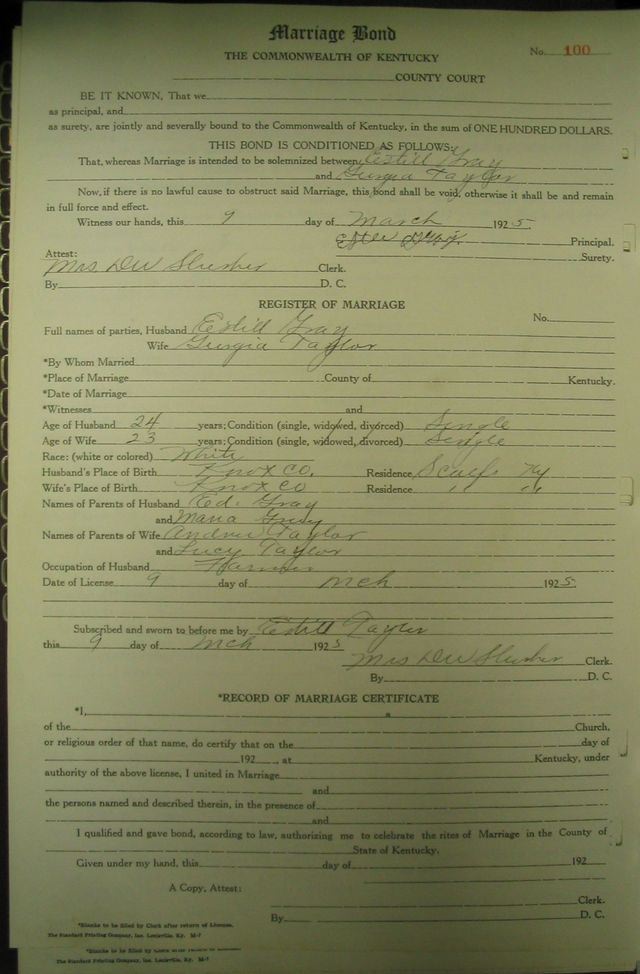 Marriage Bond
No. 100
THE COMMONWEALTH OF KENTUCKY
COUNTY COURT
BE IT KNOWN, That we
as principal, and
as surety, are jointly and severally bound to the Commonwealth of Kentucky, in the sum of ONE HUNDRED DOLLARS.
THIS BOND IS CONDITIONED AS FOLLOWS:
That, whereas Marriage is intended to be solemnized between Estill Gray
and Gurgia Taylor
Now, if there is no lawful cause to obstruct said Marriage, this bond shall be void, otherwise it shall be and remain
in full force and effect.
Witness our hands, this 9 day of March 1925
Principal.
Surety.
Attest:
Mrs D W Slusher Clerk.
By D. C.
REGISTER OF MARRIAGE
No.
Full names of parties, Husband Estill Gray
Wife Gurgia Taylor
*By Whom Married
*Place of Marriage County of Kentucky.
*Date of Marriage
*Witnesses and
Age of Husband 24 years; Condition (single, widowed, divorced) Single
Age of Wife 23 years; Condition (single, widowed, divorced) Single
Race: (white or colored) White
Husband's Place of Birth Knox Co. Residence Scalf Ky
Wife's Place of Birth Knox Co Residence " "
Names of Parents of Husband Ed. Gray
and Maria Gray
Names of Parents of Wife Andrew Taylor
and Lucy Taylor
Occupation of Husband Farmer
Date of License 9 day of Mch 1925
Subscribed and sworn to before me by Estill Taylor
this 9 day of Mch 1925
Mrs D W Slusher Clerk.
By D. C.
*RECORD OF MARRIAGE CERTIFICATE
*I, a
of the Church,
or religious order of that name, do certify that on the day of
192 , at Kentucky, under
authority of the above license, I united in Marriage
and
the persons named and described therein, in the presence of
and
I qualified and gave bond, according to law, authorizing me to celebrate the rites of Marriage in the County of
State of Kentucky.
Given under my hand, this day of 192
A Copy, Attest:
Clerk.
By D. C.
*Blanks to be filled by Clerk after return of License.
The Standard Printing Company, Inc. Louisville, Ky. M-7
*Blanks to be filled by Clerk after return of License.
The Standard Printing Company, Inc. Louisville, Ky. M-7